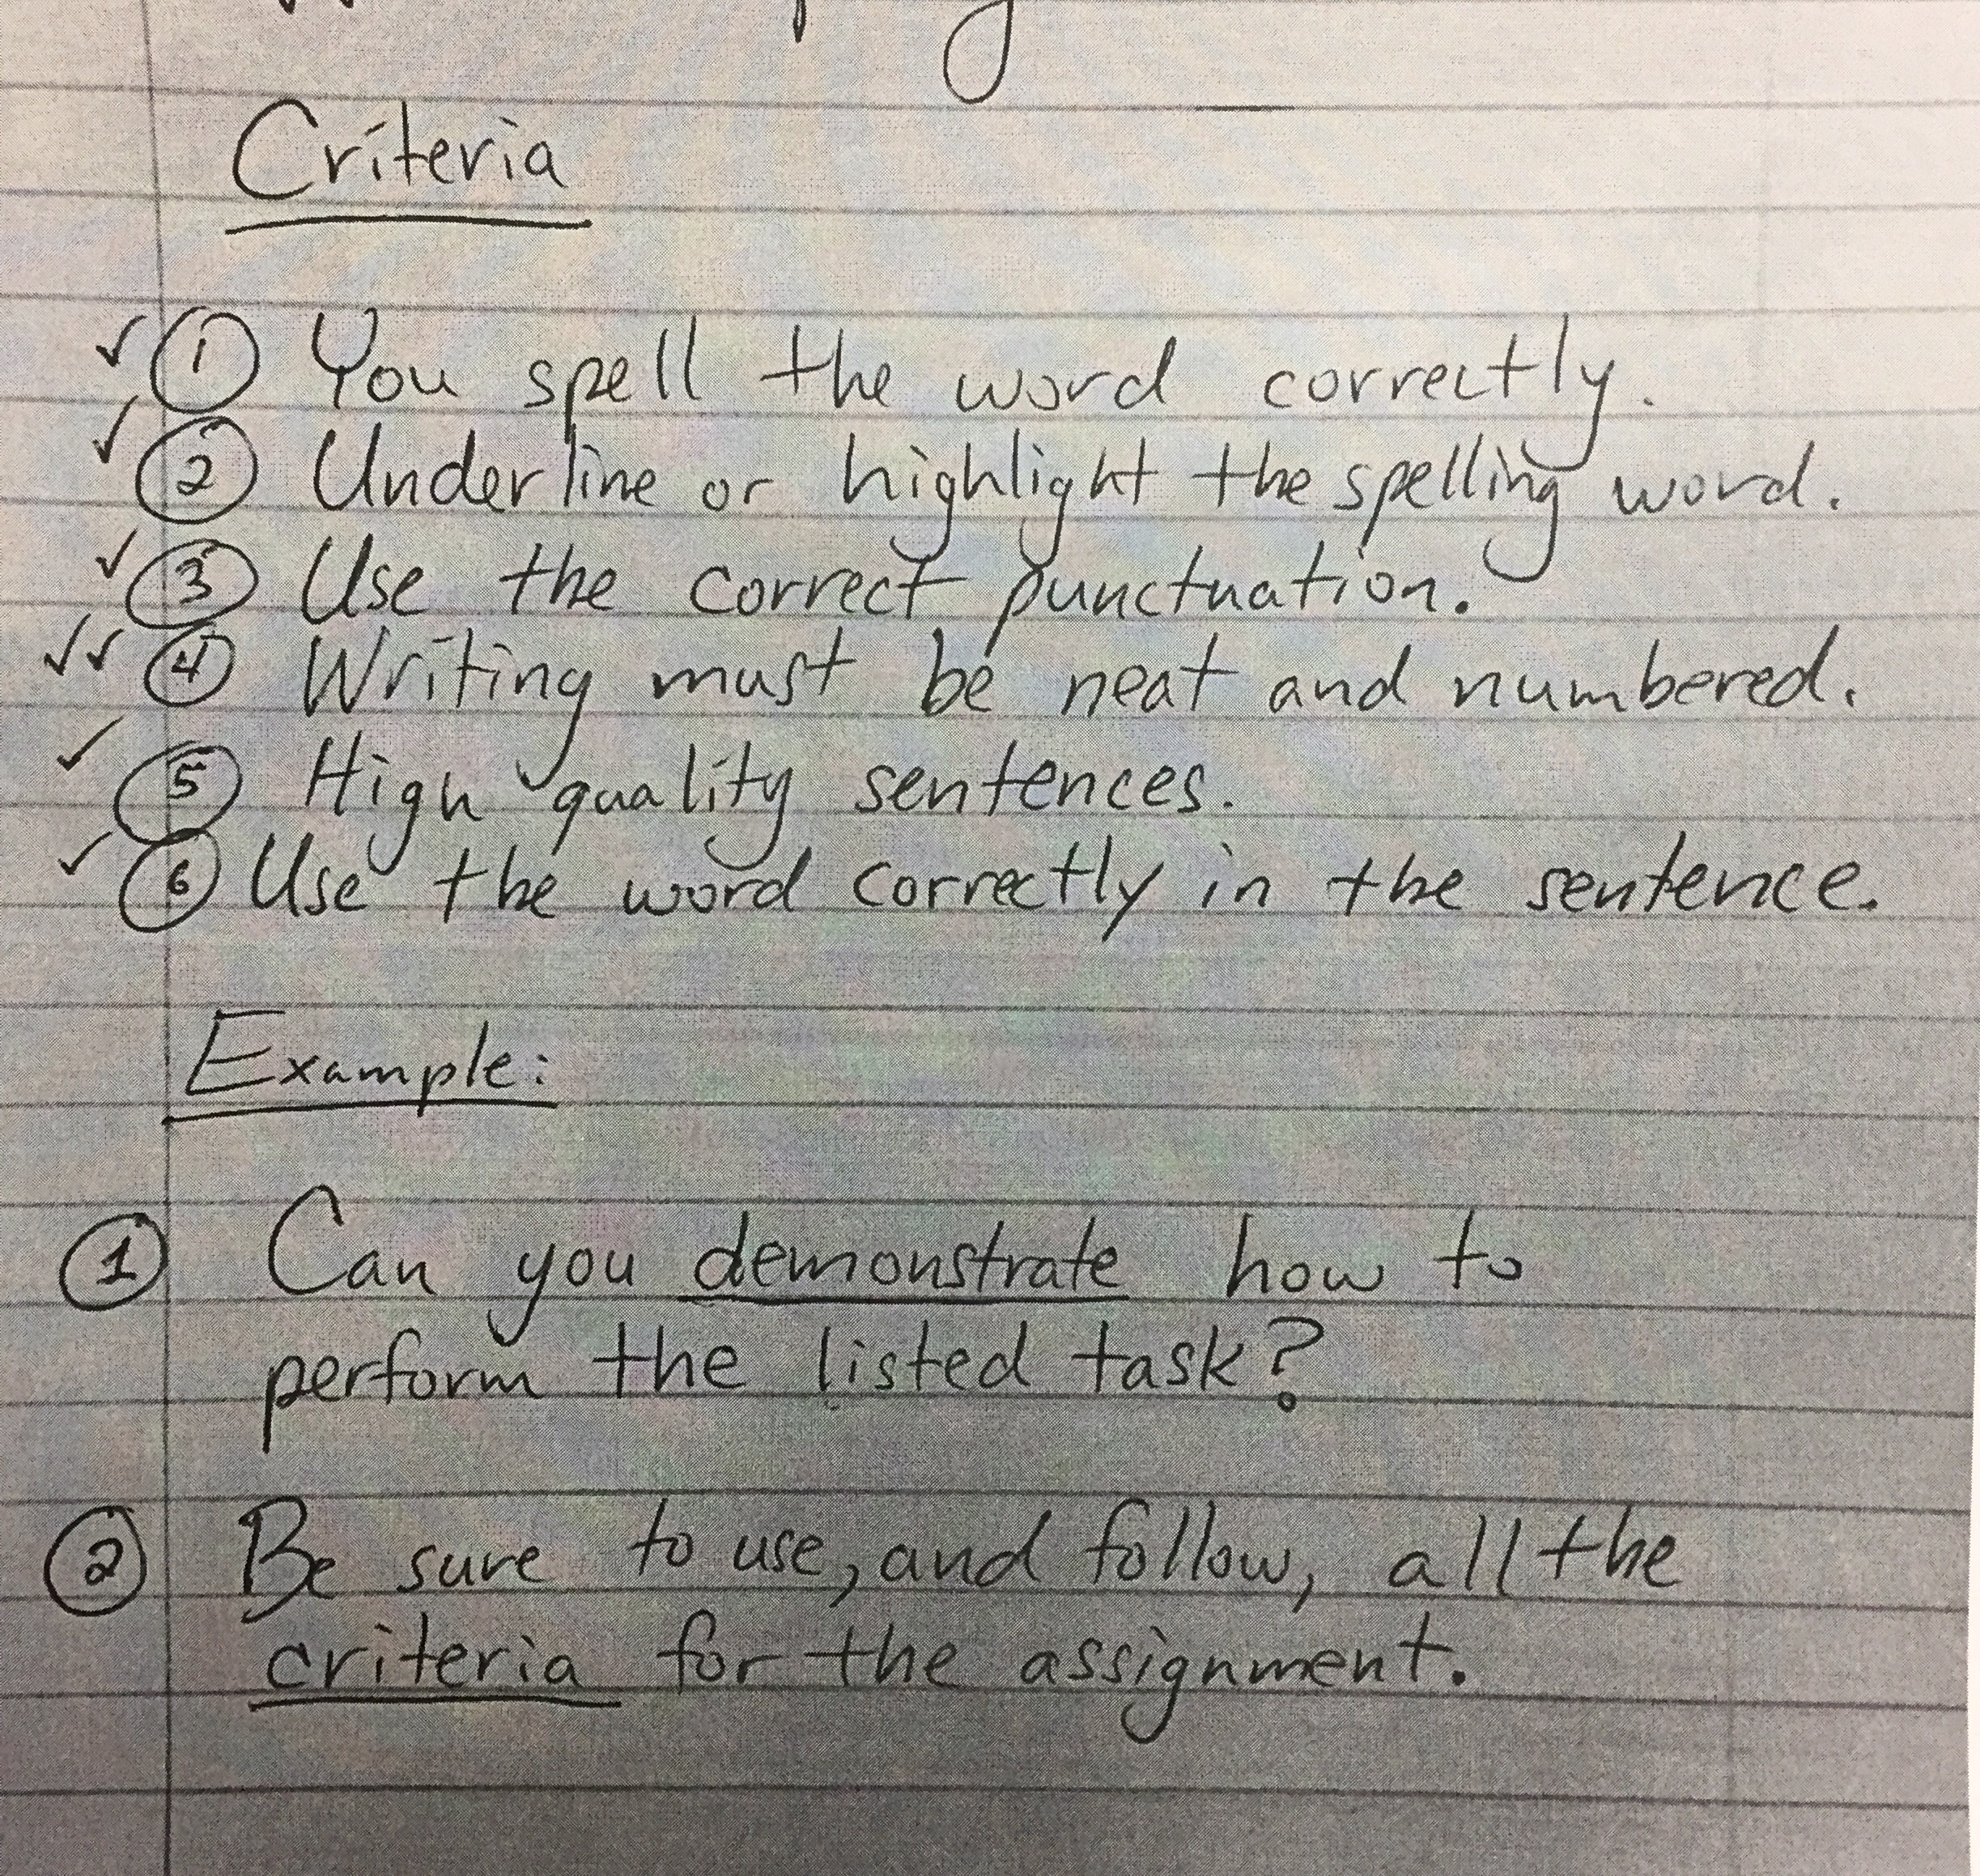 Criteria
✓ ① You spell the word correctly.
✓ ② Underline or highlight the spelling word.
✓ ③ Use the correct punctuation.
✓✓ ④ Writing must be neat and numbered.
✓ ⑤ High quality sentences.
✓ ⑥ Use the word correctly in the sentence.
Example:
① Can you demonstrate how to
perform the listed task?
② Be sure to use, and follow, all the
criteria for the assignment.